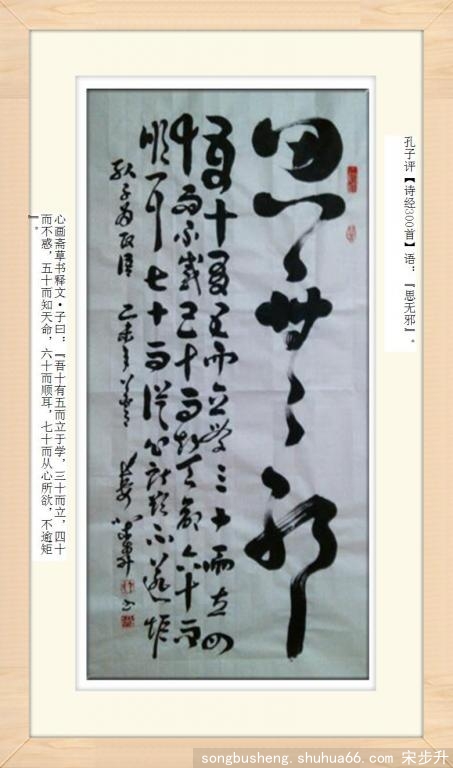 孔子评【诗经300首】语：『思无邪』。
思無邪
吾十有五而立學三十而立四
十而不惑五十而知天命六十而
順耳七十而從心所欲不逾矩
孔子為政語 乙未年
心画斋草书释文·子曰：『吾十有五而立于学，三十而立，四十
而不惑，五十而知天命，六十而顺耳，七十而从心所欲，不逾矩
』。
songbusheng. shuhua66.com 宋步升